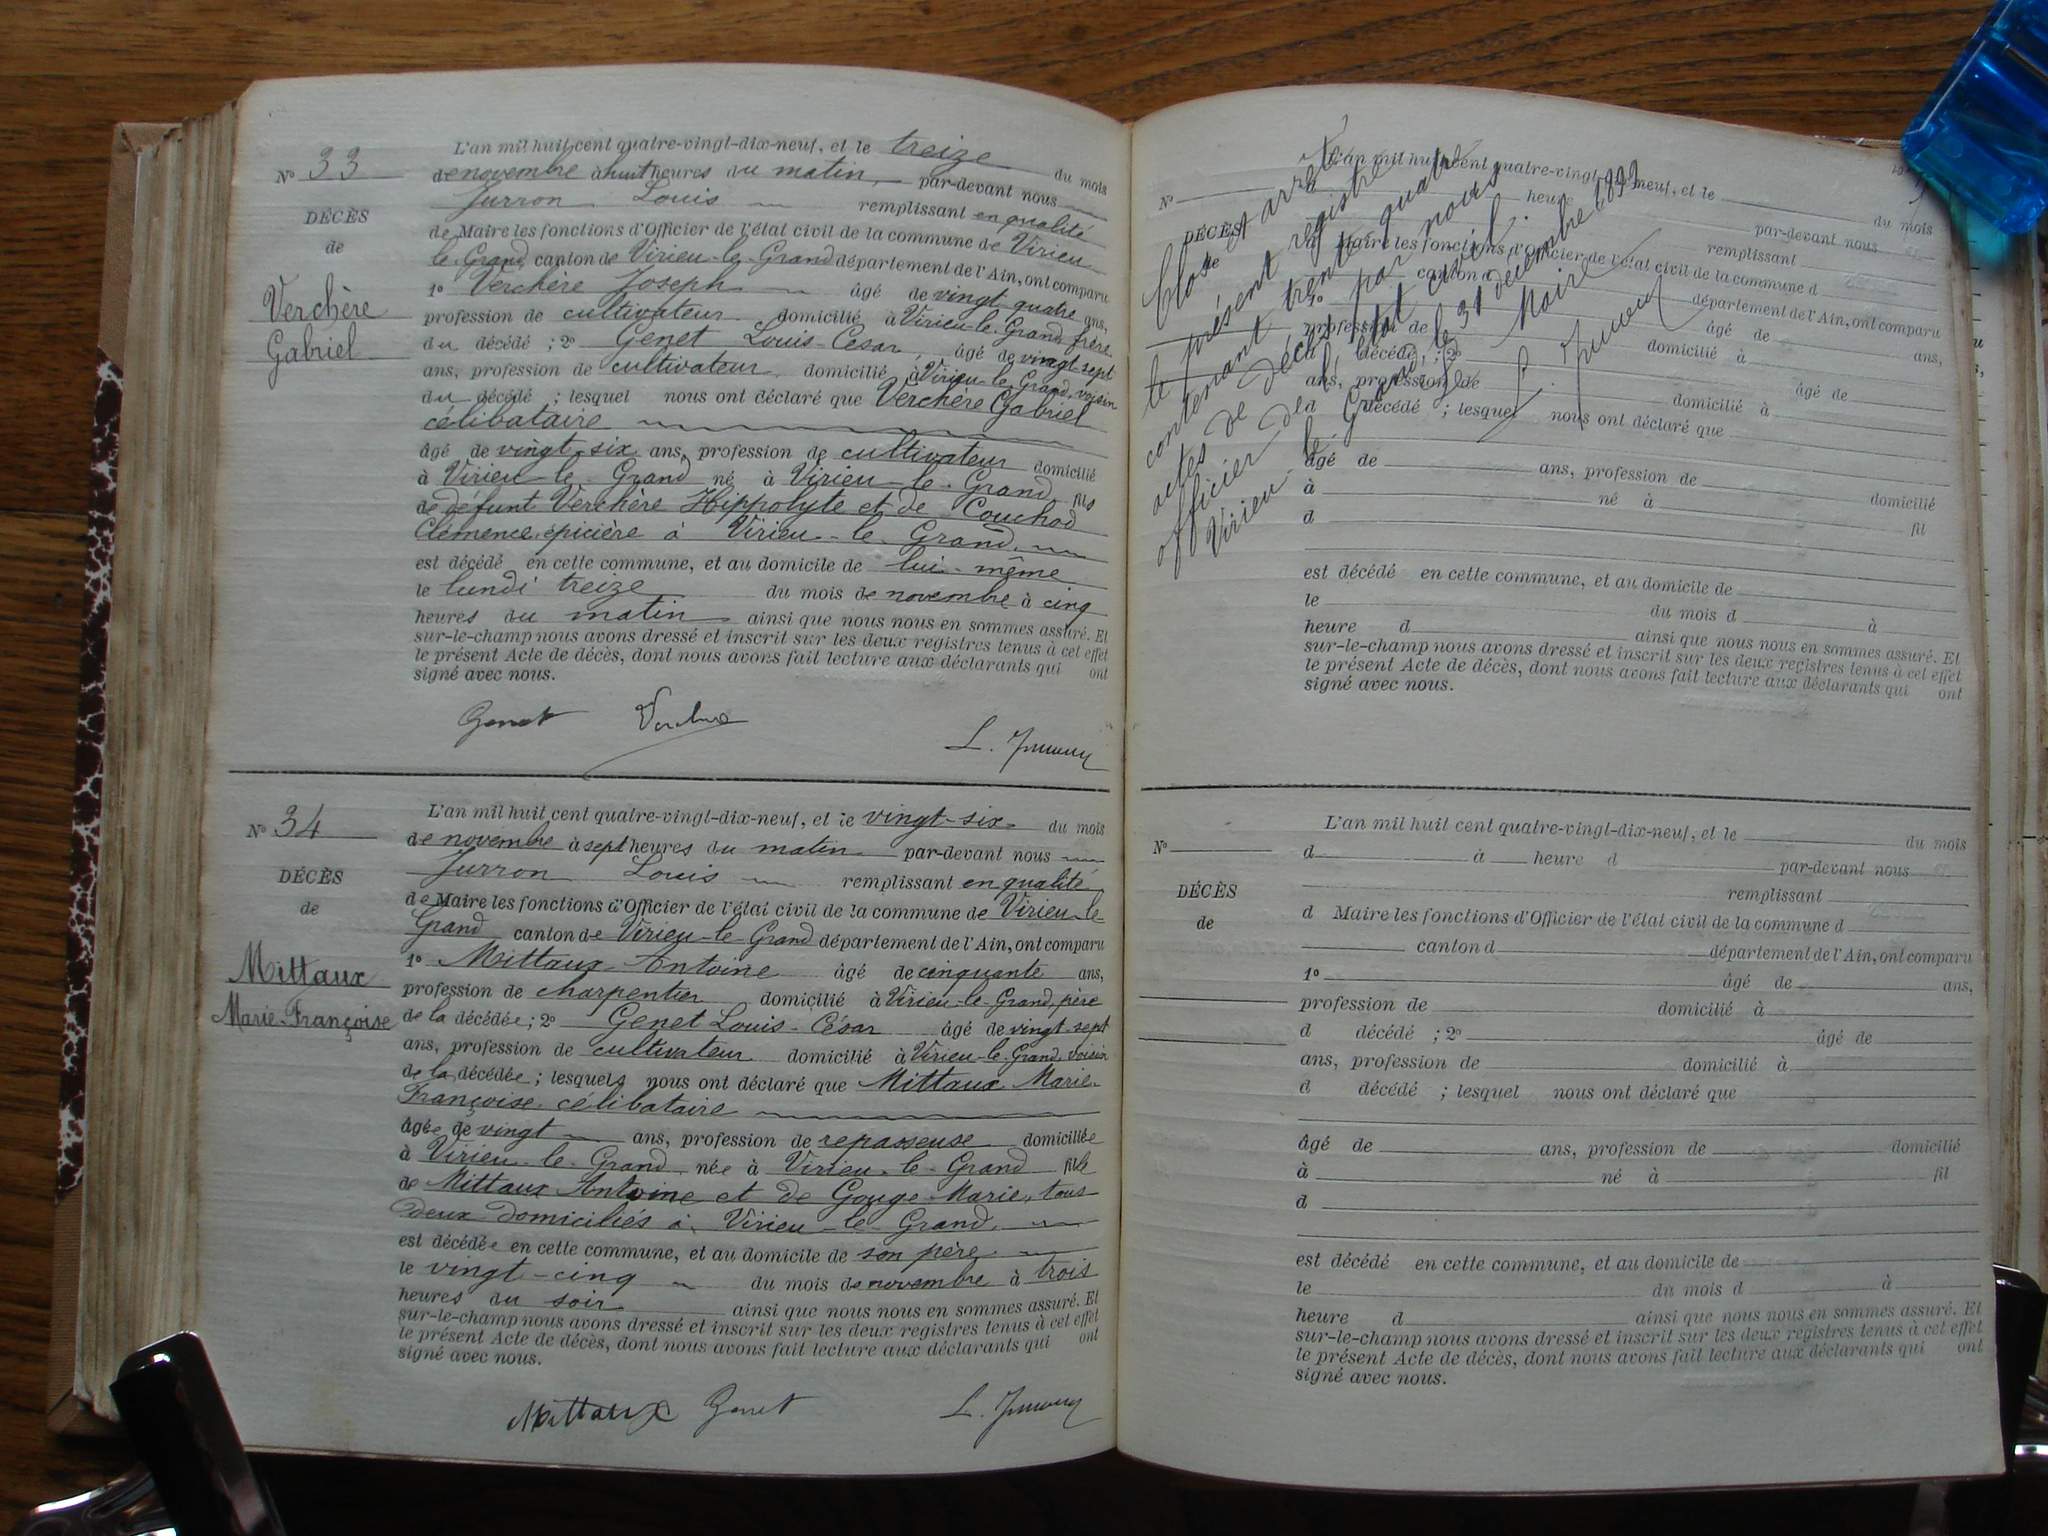 L'an mil huit cent quatre-vingt-dix-neuf, et le treize du mois
N° 33 de novembre à huit heures du matin, par-devant nous
Jurron Louis remplissant en qualité
DÉCÈS
de Maire les fonctions d'Officier de l'état civil de la commune de Virieu
de
le-Grand canton de Virieu-le-Grand département de l'Ain, ont comparu
Verchère
Gabriel
1° Verchère Joseph âgé de vingt quatre ans,
profession de cultivateur domicilié à Virieu-le-Grand, frère
du décédé ; 2° Genet Louis-César, âgé de vingt-sept
ans, profession de cultivateur, domicilié à Virieu-le-Grand, voisin
du décédé ; lesquel nous ont déclaré que Verchère Gabriel
célibataire
âgé de vingt-six ans, profession de cultivateur domicilié
à Virieu-le-Grand né à Virieu-le-Grand, fils
de défunt Verchère Hippolyte et de Couchod
Clémence, épicière à Virieu-le-Grand,
est décédé en cette commune, et au domicile de lui-même
le lundi treize du mois de novembre à cinq
heures du matin ainsi que nous nous en sommes assuré. Et
sur-le-champ nous avons dressé et inscrit sur les deux registres tenus à cet effet
le présent Acte de décès, dont nous avons fait lecture aux déclarants qui ont
signé avec nous.
Genet Verchère
L. Jurron
L'an mil huit cent quatre-vingt-dix-neuf, et le vingt-six du mois
N° 34 de novembre à sept heures du matin par-devant nous
Jurron Louis remplissant en qualité
DÉCÈS
de Maire les fonctions d'Officier de l'état civil de la commune de Virieu-le-
de
Grand canton de Virieu-le-Grand département de l'Ain, ont comparu
Mittaux
Marie-Françoise
1° Mittaux Antoine âgé de cinquante ans,
profession de charpentier domicilié à Virieu-le-Grand, père
de la décédée ; 2° Genet Louis-César âgé de vingt-sept
ans, profession de cultivateur domicilié à Virieu-le-Grand, voisin
de la décédée ; lesquels nous ont déclaré que Mittaux Marie-
Françoise célibataire
âgée de vingt ans, profession de repasseuse domiciliée
à Virieu-le-Grand, née à Virieu-le-Grand fille
de Mittaux Antoine et de Gouge Marie, tous
deux domiciliés à Virieu-le-Grand,
est décédée en cette commune, et au domicile de son père
le vingt-cinq du mois de novembre à trois
heures du soir ainsi que nous nous en sommes assuré. Et
sur-le-champ nous avons dressé et inscrit sur les deux registres tenus à cet effet
le présent Acte de décès, dont nous avons fait lecture aux déclarants qui ont
signé avec nous.
Mittaux Genet L. Jurron
Clos et arrêté
le présent registre
contenant trente quatre
actes de décès par nous
officier de l'état civil.
Virieu-le-Grand, le 31 décembre 1899
Maire
L. Jurron
L'an mil huit cent quatre-vingt-dix-neuf, et le du mois
N° heure par-devant nous
remplissant
DÉCÈS
de
d Maire les fonctions d'Officier de l'état civil de la commune d
canton d département de l'Ain, ont comparu
1° âgé de ans,
profession de domicilié à
d décédé ; 2° âgé de
ans, profession de domicilié à
d décédé ; lesquel nous ont déclaré que
âgé de ans, profession de domicilié
à né à fil
d
est décédé en cette commune, et au domicile de
le du mois d à
heure d ainsi que nous nous en sommes assuré. Et
sur-le-champ nous avons dressé et inscrit sur les deux registres tenus à cet effet
le présent Acte de décès, dont nous avons fait lecture aux déclarants qui ont
signé avec nous.
L'an mil huit cent quatre-vingt-dix-neuf, et le du mois
N° d à heure d par-devant nous
remplissant
DÉCÈS
d Maire les fonctions d'Officier de l'état civil de la commune d
de
canton d département de l'Ain, ont comparu
1° âgé de ans,
profession de domicilié à
d décédé ; 2° âgé de
ans, profession de domicilié à
d décédé ; lesquel nous ont déclaré que
âgé de ans, profession de domicilié
à né à fil
d
est décédé en cette commune, et au domicile de
le du mois d à
heure d ainsi que nous nous en sommes assuré. Et
sur-le-champ nous avons dressé et inscrit sur les deux registres tenus à cet effet
le présent Acte de décès, dont nous avons fait lecture aux déclarants qui ont
signé avec nous.